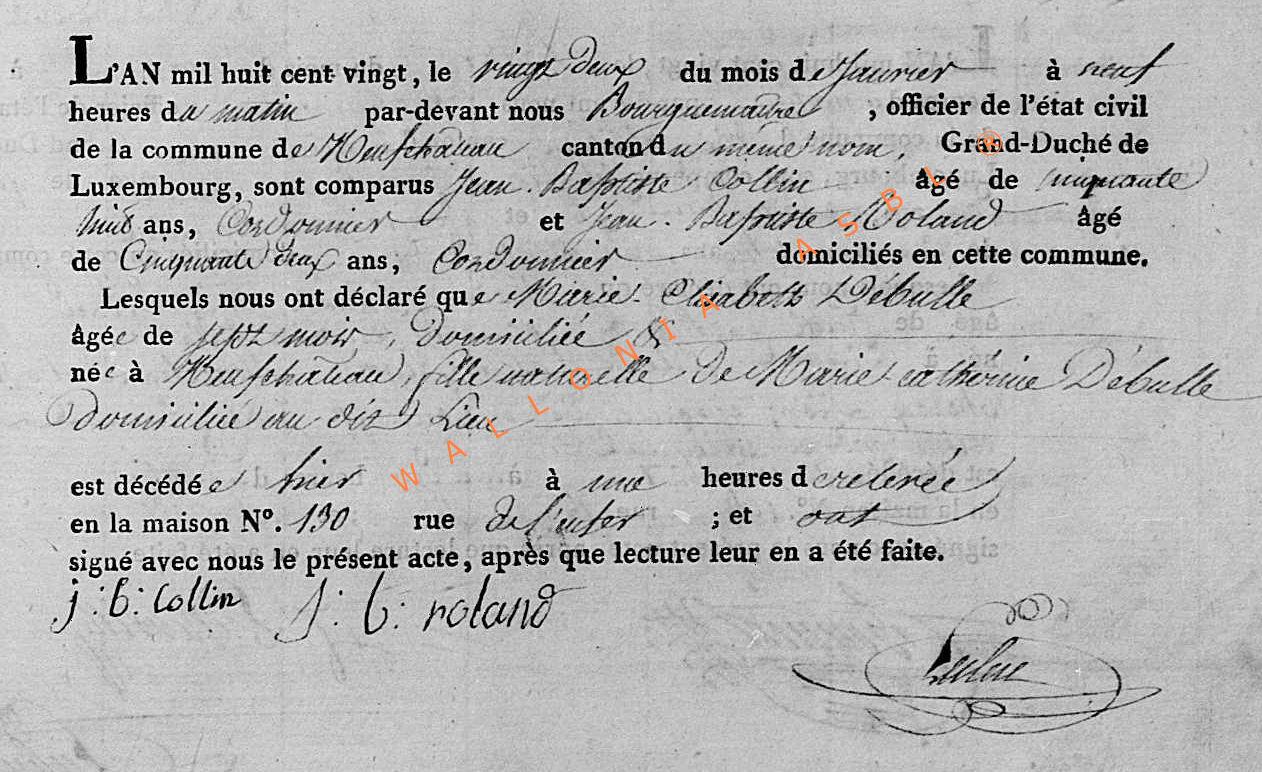 L'AN mil huit cent vingt, le vingt deux du mois de Janvier à neuf
heures du matin par-devant nous Bourguemaître, officier de l'état civil
de la commune de Neufchateau canton du même nom, Grand-Duché de
Luxembourg, sont comparus Jean-Baptiste Collin âgé de cinquante
huit ans, Cordonnier et Jean-Baptiste Roland âgé
de Cinquante deux ans, Cordonnier domiciliés en cette commune.
Lesquels nous ont déclaré que Marie-Elisabeth Débulle
âgée de sept mois, Domiciliée &
née à Neufchâteau, fille naturelle de Marie-catherine Débulle
Domiciliée au dit Lieu
est décédée hier à une heures de relevée
en la maison Nº. 130 rue de l'enfer ; et ont
signé avec nous le présent acte, après que lecture leur en a été faite.
j : b : Collin J : b : roland
WALLONIA ASBL ®